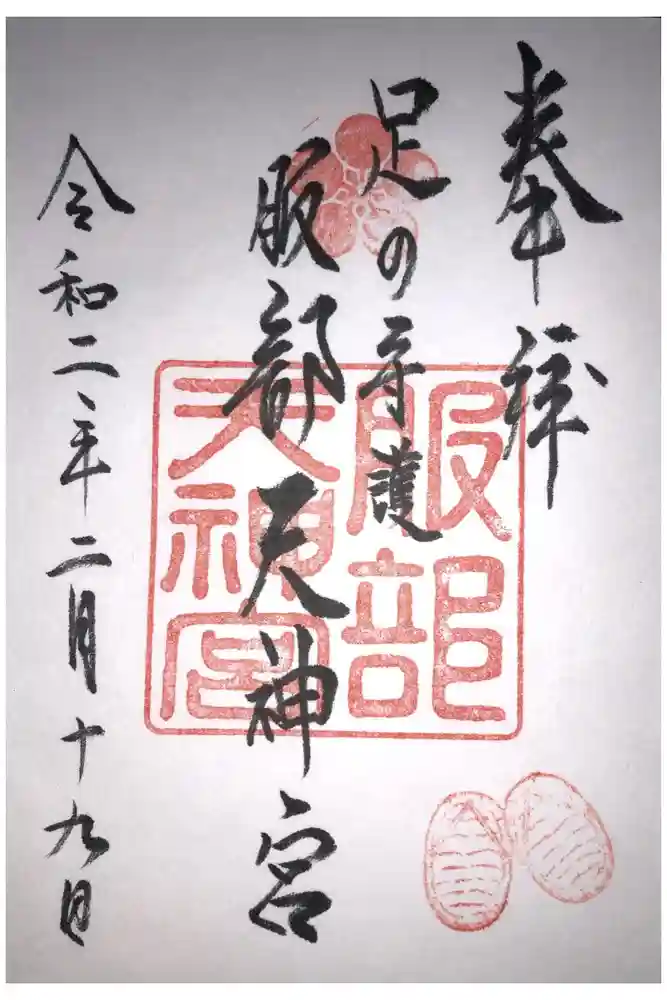 奉拝
足の守護
服部天神宮
令和二年二月十九日
服部
天神宮